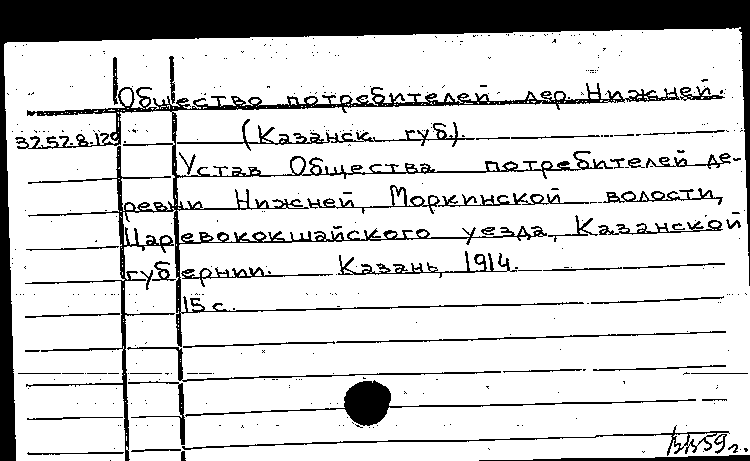 Общество потребителей дер. Нижней.
37.57.8.129. (Казанск. губ.).
Устав Общества потребителей де-
ревни Нижней, Моркинской волости,
Царевококшайского уезда, Казанской
губернии. Казань, 1914.
15 с.
59 г.